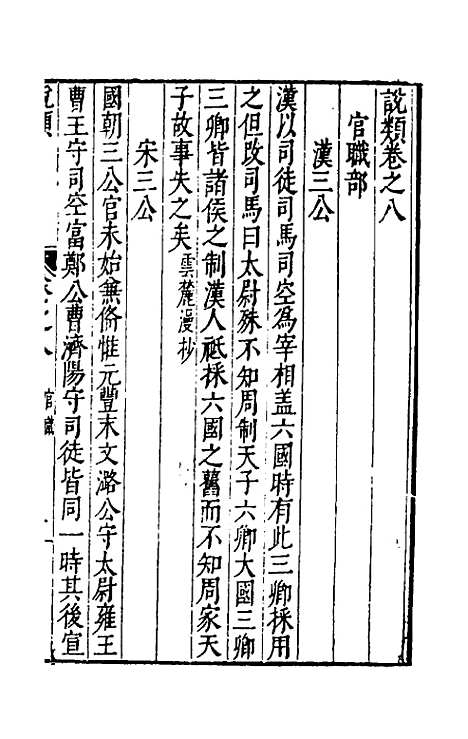 說類卷之八
官職部
漢三公
漢以司徒司馬司空為宰相盖六國時有此三卿採用
之但改司馬曰太尉殊不知周制天子六卿大國三卿
三卿皆諸侯之制漢人祗採六國之舊而不知周家天
子故事失之矣雲麓漫抄
宋三公
國朝三公官未始兼脩惟元豐末文潞公守太尉雍王
曹王守司空富鄭公曹濟陽守司徒皆同一時其後宣
說類
卷之八
官職
一